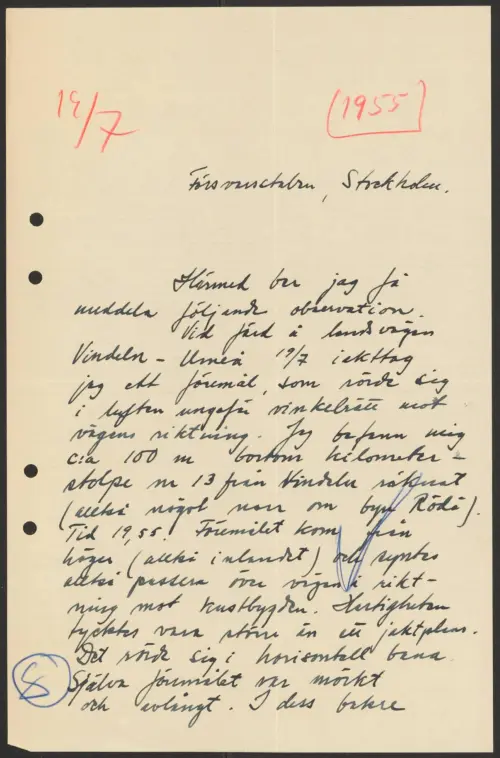 19/7
(1955)
Försvarsstaben, Stockholm.
Härmed ber jag få
meddela följande observation.
Vid färd å landsvägen
Vindeln - Umeå 19/7 iakttog
jag ett föremål, som rörde sig
i luften ungefär vinkelrätt mot
vägens riktning. Jag befann mig
c:a 100 m bortom kilometer-
stolpe nr 13 från Vindeln räknat
(alltså något norr om byn Rödå).
Tid 19,55. Föremålet kom från
höger (alltså inlandet) och syntes
alltså passera över vägen i rikt-
ning mot kustbygden. Hastigheten
tycktes vara större än ett jaktplans.
Det rörde sig i horisontell bana.
Själva föremålet var mörkt
och avlångt. I dess bakre
8